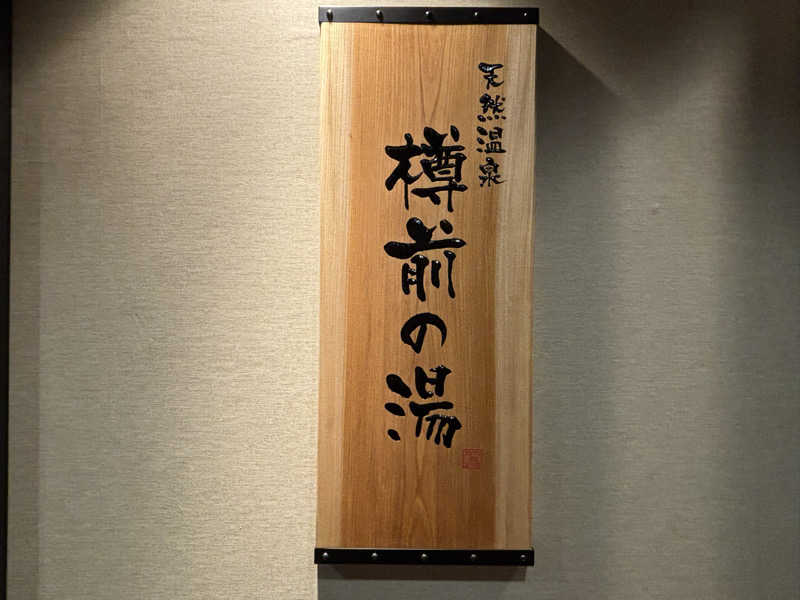 天然温泉
樽前の湯